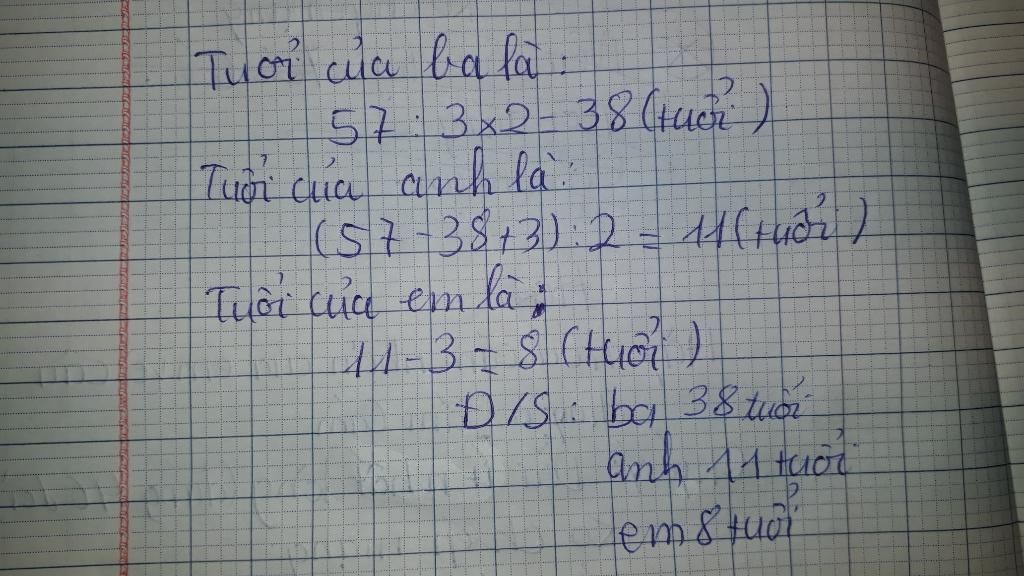 Tuổi của ba là:
57 : 3 x 2 = 38 (tuổi)
Tuổi của anh là:
(57 - 38 + 3) : 2 = 11 (tuổi)
Tuổi của em là:
11 - 3 = 8 (tuổi)
Đ/S: ba 38 tuổi
anh 11 tuổi
em 8 tuổi